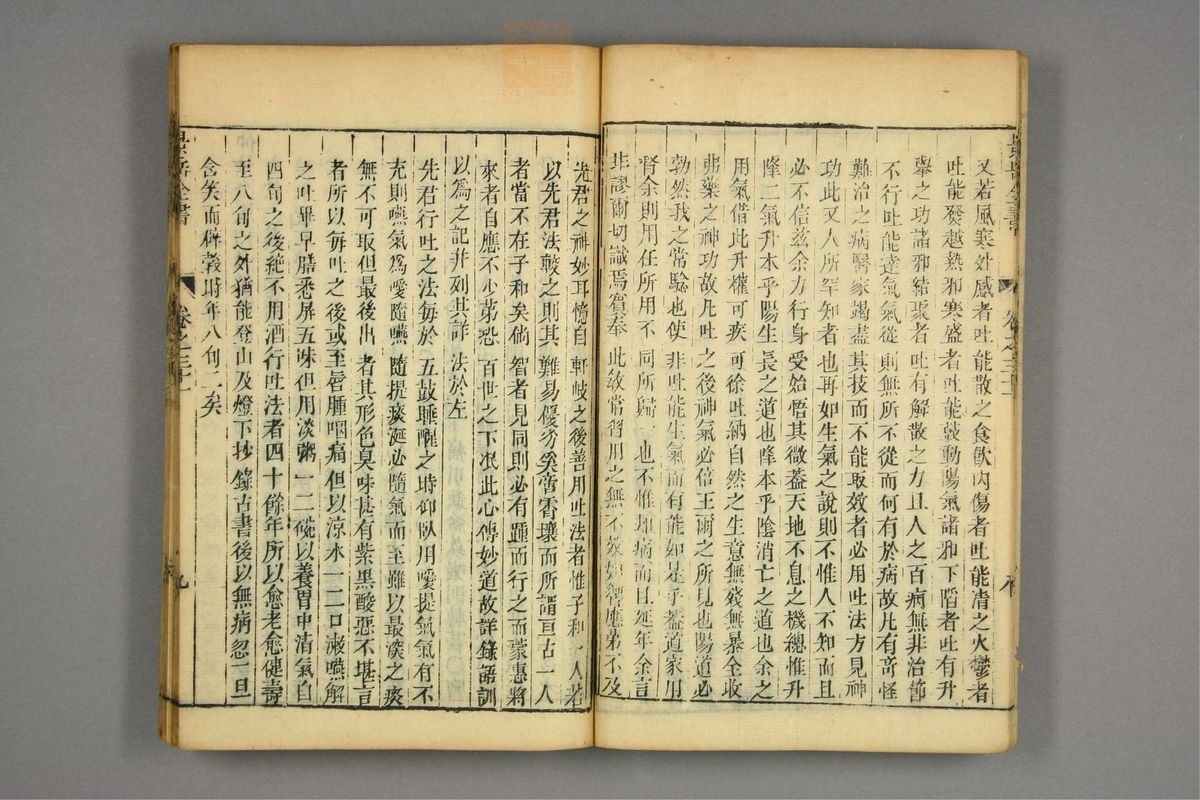 又若風寒外感者吐能散之食飲內傷者吐能清之火鬱者
吐能發越熱邪寒盛者吐能鼓動陽氣諸邪下陷者吐有升
舉之功諸邪結聚者吐有解散之方且人之百病無非治節
不行吐能達氣氣從則無所不從而何有於病故凡有奇怪
難治之病醫家竭盡其技而不能取效者必用吐法方見神
功此又人所罕知者也再如生氣之說則不惟人不知而且
必不信茲余力行身受始悟其微蓋天地不息之機總惟升
降二氣升本乎陽生長之道也降本乎陰消亡之道也余之
用氣借此升權可疾可徐吐納自然之生意無殘無暴全收
弗藥之神功故凡吐之後神氣必倍王爾之所見也陽道必
勃然我之常驗也使非吐能生氣而有能如是乎蓋道家用
督余則用任所用不同所歸一也不惟却病而且延年余言
非謬爾切識焉賓奉此敘常習用之無不效如響應第不及
先君之神妙耳憶自軒岐之後善用吐法者惟子和一人若
以先君法較之則其難易優劣奚啻霄壤而所謂亘古一人
者當不在子和矣倘智者見同則必有踵而行之而蒙惠將
來者自應不少第恐百世之下泯此心傳妙道故詳錄語訓
以為之記幷列其詳法於左
先君行吐之法每於五鼓睡醒之時仰臥用噯提氣氣有不
充則嚥氣為噯隨嚥隨提痰涎必隨氣而至雖以最深之痰
無不可取但最後出者其形色臭味甚有紫黑酸惡不堪言
者所以每吐之後或至唇腫咽痛但以涼水一二口漱嚥解
之吐畢早膳悉屏五味但用淡粥一二碗以養胃中清氣自
四旬之後絶不用酒行吐法者四十餘年所以愈老愈健壽
至八旬之外猶能登山及燈下抄錄古書後以無病忽一旦
含笑而辭榖時年八旬二矣
景岳全書
卷之三十一
九